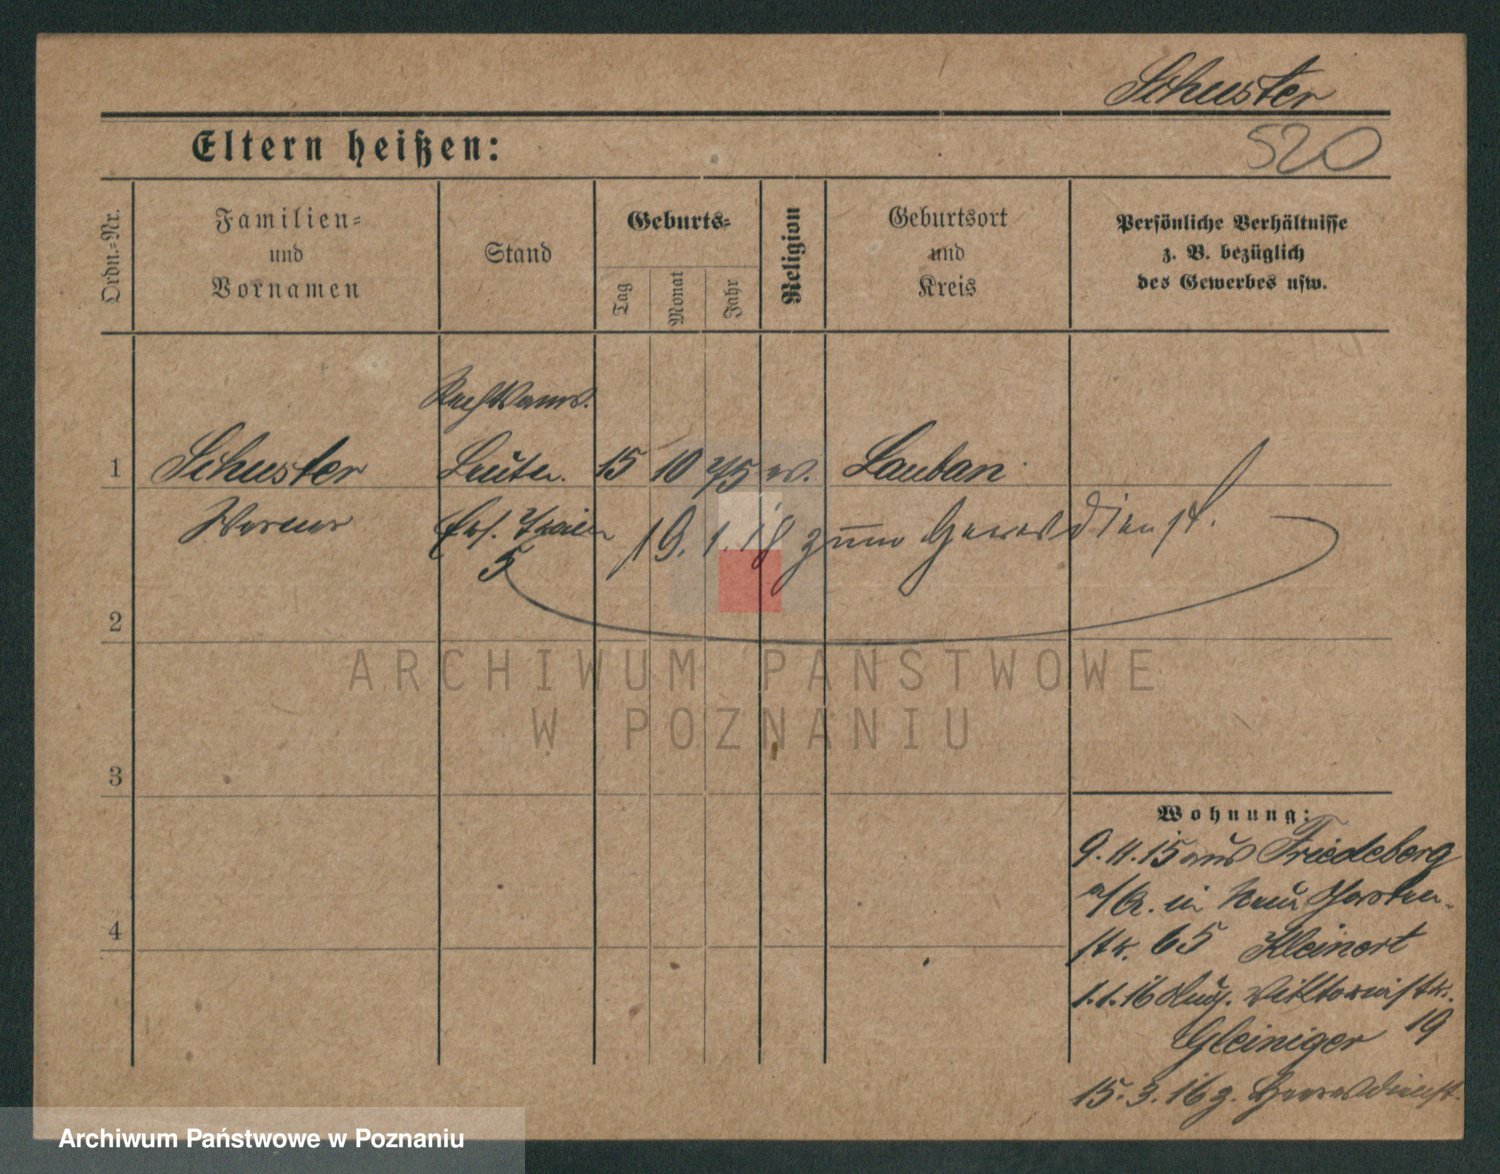 Schuster
520
Eltern heißen:
Ordn.-Nr.
Familien-
und
Vornamen
Stand
Geburts-
Tag
Monat
Jahr
Religion
Geburtsort
und
Kreis
Persönliche Verhältnisse
z. B. bezüglich
des Gewerbes usw.
Rechtsanw.
1 Schuster Leutn. 15 10 75 ev. Lauban
Werner Ers.
5
19. 1. 18 zum Heeresdienst.
2
ARCHIWUM PAŃSTWOWE
W POZNANIU
3
4
Wohnung:
9.11.15 aus Friedeberg
a/Q. in Neue Garten-
str. 65 Kleinert
1.1.16 Aug. Viktoriastr.
Gleiniger 19
15.3.16 z. Heeresdienst.
Archiwum Państwowe w Poznaniu